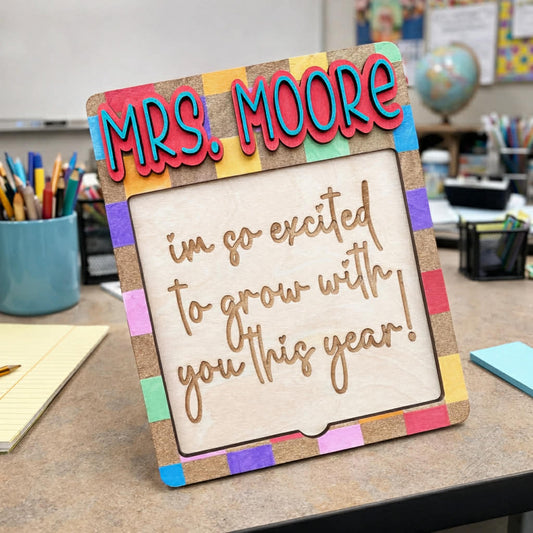 MRS. MOORE
im so excited
to grow with
you this year!